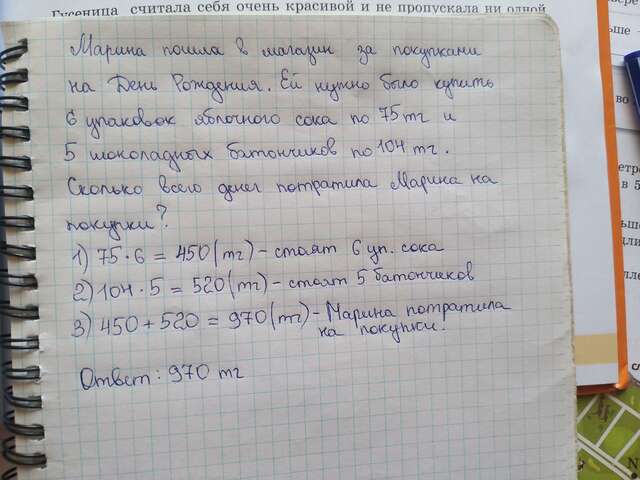 Гусеница считала себя очень красивой и не пропускала ни одной
Марина пошла в магазин за покупками
на День Рождения. Ей нужно было купить
6 упаковок яблочного сока по 75 тг и
5 шоколадных батончиков по 104 тг.
Сколько всего денег потратила Марина на
покупки?
1) 75 · 6 = 450 (тг) - стоят 6 уп. сока
2) 104 · 5 = 520 (тг) - стоят 5 батончиков
3) 450 + 520 = 970 (тг) - Марина потратила
на покупки.
Ответ: 970 тг